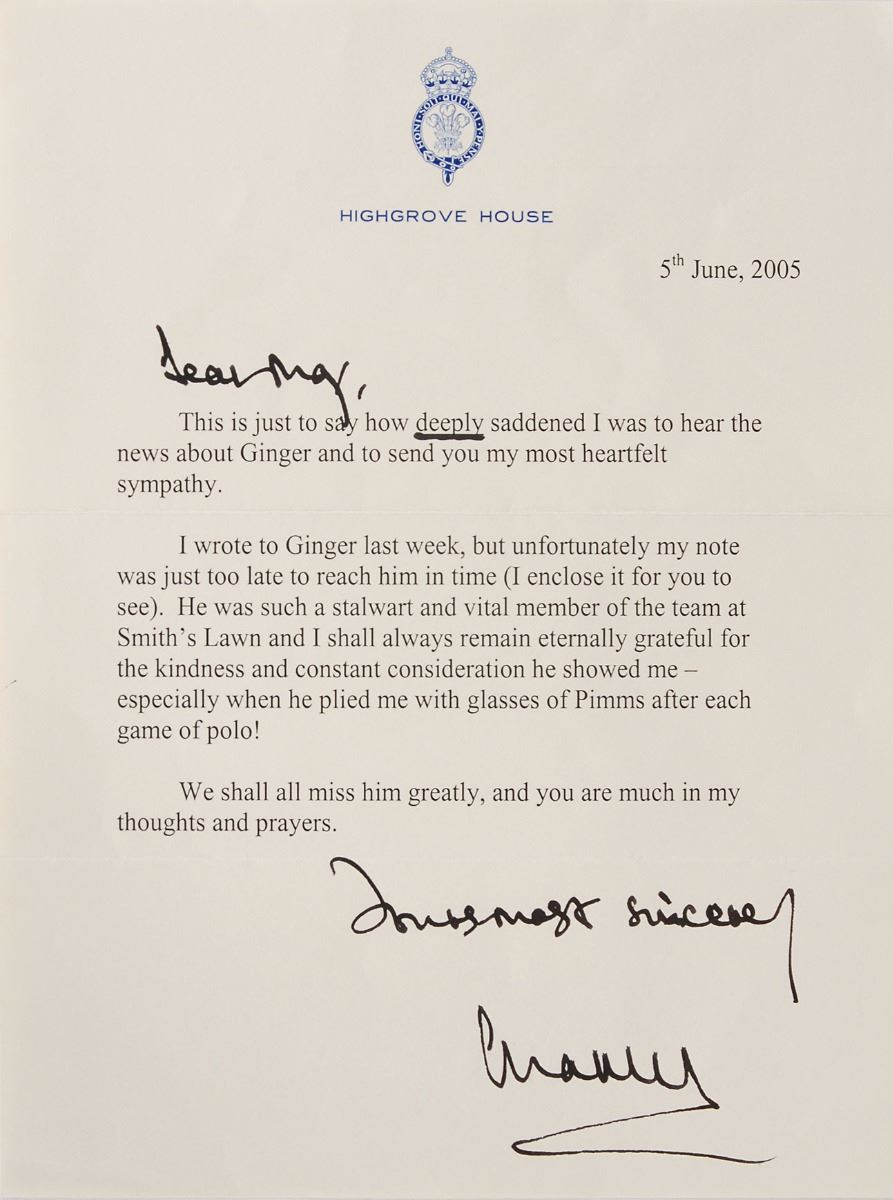 HONI·SOIT·QUI·MAL·Y·PENSE
HIGHGROVE HOUSE
5th June, 2005
Dear
This is just to say how deeply saddened I was to hear the
news about Ginger and to send you my most heartfelt
sympathy.
I wrote to Ginger last week, but unfortunately my note
was just too late to reach him in time (I enclose it for you to
see). He was such a stalwart and vital member of the team at
Smith's Lawn and I shall always remain eternally grateful for
the kindness and constant consideration he showed me –
especially when he plied me with glasses of Pimms after each
game of polo!
We shall all miss him greatly, and you are much in my
thoughts and prayers.
Yours most sincerely
Charles